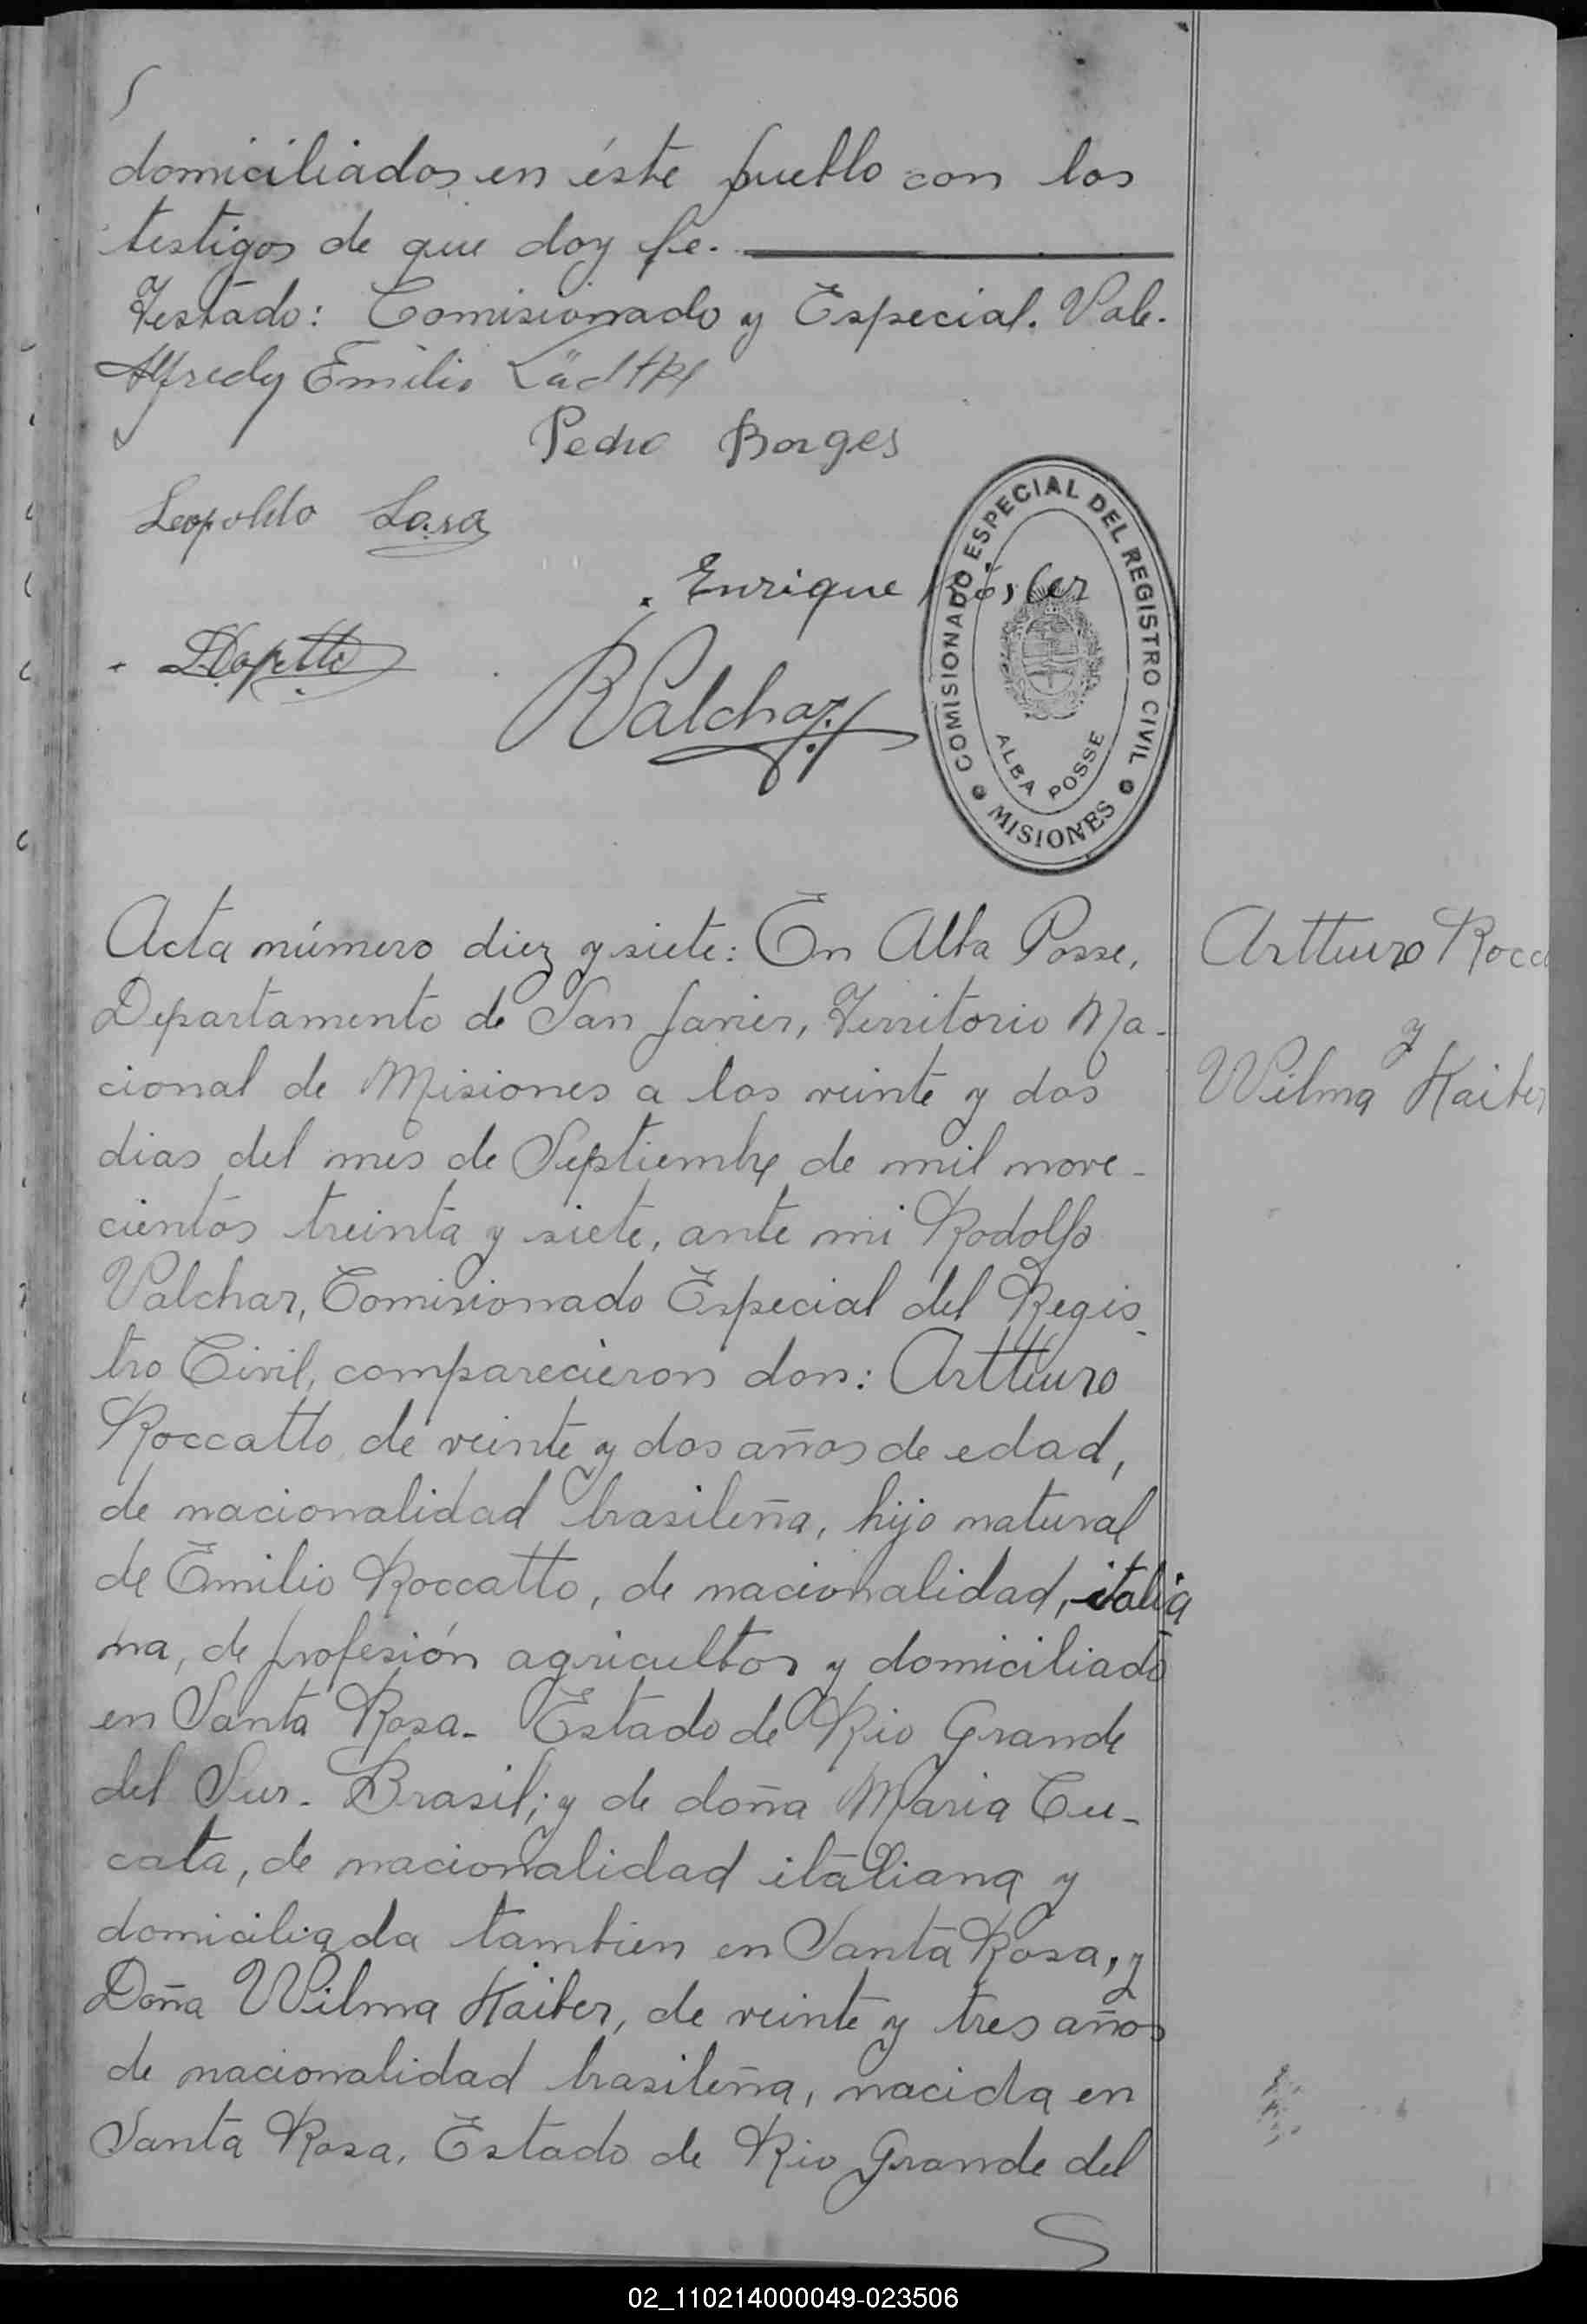 domiciliados en éste pueblo con los
testigos de que doy fe.
Testado: Comisionado y Especial. Vale.
Alfredy Emilio Lüdtke
Pedro Borges
Leopoldo Lara
Enrique
RValchar
COMISIONADO ESPECIAL DEL REGISTRO CIVIL
ALBA POSSE
MISIONES
Acta número diez y siete: En Alba Posse,
Departamento de San Javier, Territorio Na-
cional de Misiones a los veinte y dos
dias del mes de Septiembre de mil nove-
cientos treinta y siete, ante mi Rodolfo
Valchar, Comisionado Especial del Regis-
tro Civil, comparecieron don: Artturo
Roccatto de veinte y dos años de edad,
de nacionalidad brasileña, hijo natural
de Emilio Roccatto, de nacionalidad, italia
na, de profesión agricultor y domiciliado
en Santa Rosa- Estado de Rio Grande
del Sur- Brasil; y de doña Maria Cu-
cata, de nacionalidad italiana y
domiciliada tambien en Santa Rosa, y
Doña Wilma Kaiber, de veinte y tres años
de nacionalidad brasileña, nacida en
Santa Rosa, Estado de Rio Grande del
Artturo Rocca
y
Wilma Kaiber
02_110214000049-023506